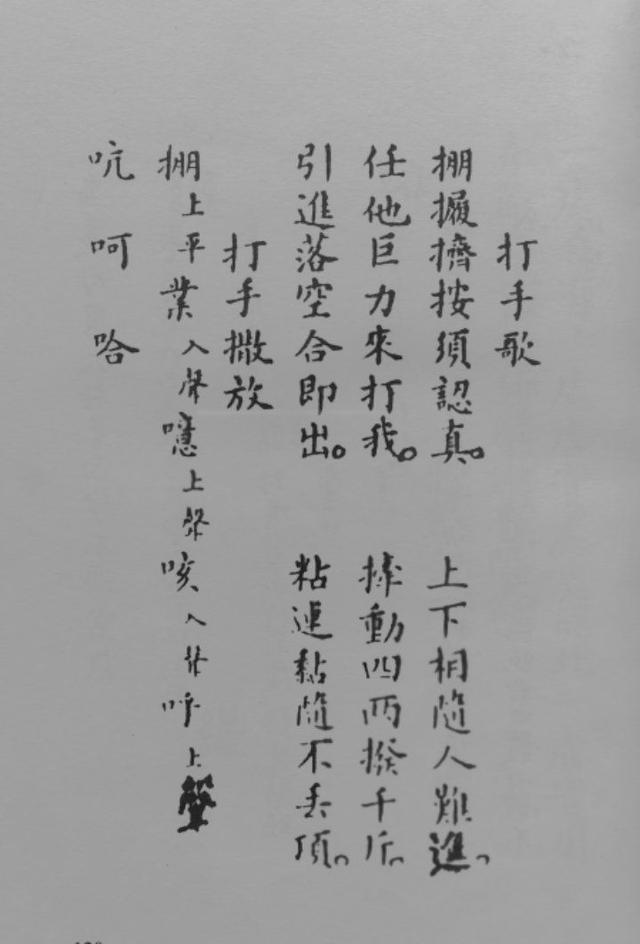 打手歌
掤攦擠按須認真。上下相隨人難進、
任他巨力來打我。捧動四两撥千斤。
引進落空合即出。粘連黏隨不丢頂。
打手撒放
掤上平業入聲噫上聲咳入聲呼上聲
吭呵哈